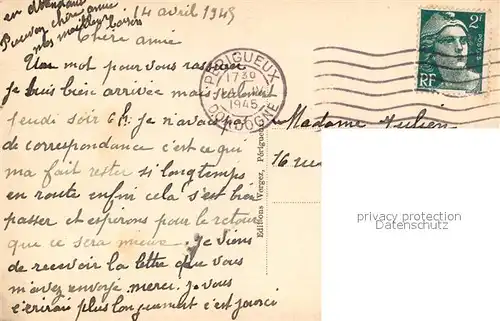 en attendant
Recevez chère amie
mes meilleurs
baisers
14 avril 1945
Chère amie
Un mot pour vous rassurer
je suis bien arrivée mais seulement
jeudi soir 6h. Je n'avais pas
de correspondance c'est ce qui
ma fait rester si longtemps
en route enfin cela s'est bien
passer et esperons pour le retour
que ce sera mieux. Je viens
de recevoir la lettre que vous
m'avez envoyé. merci. je vous
écrirais plus longuement c'est promis
PÉRIGUEUX
1730
1945
DORDOGNE
2F
POSTES
RF
Madame Julien
16 rue
Editions Verger, Périgueux
privacy protection
Datenschutz